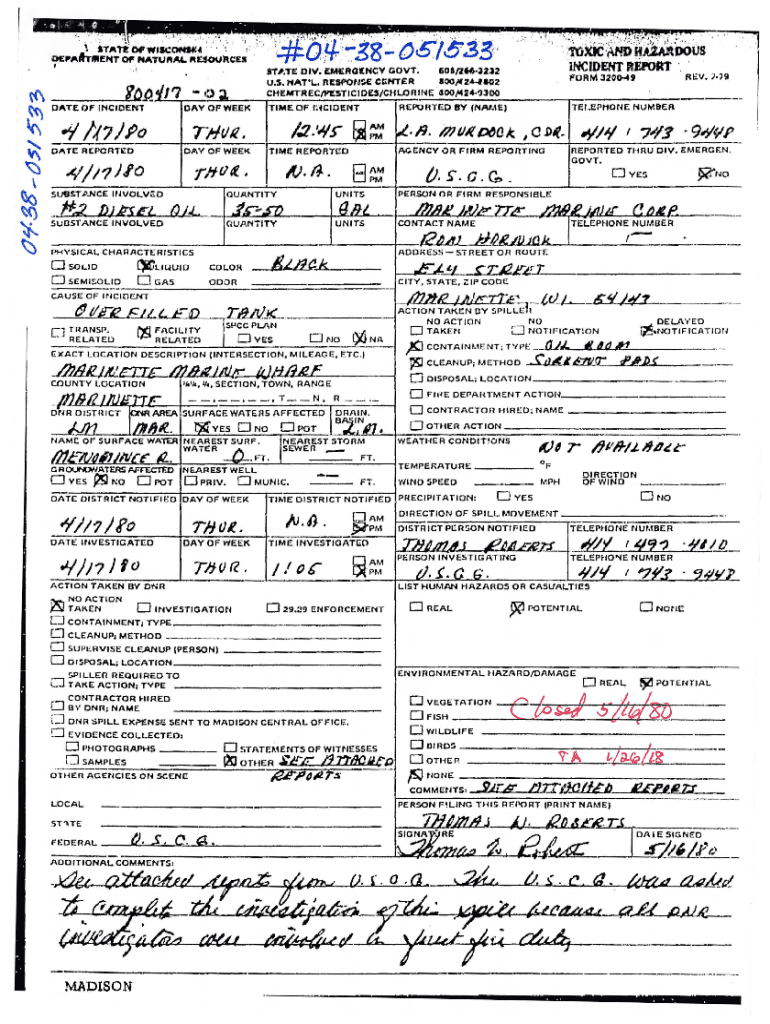 STATE OF WISCONSIN
DEPARTMENT OF NATURAL RESOURCES
#04-38-051533
STATE DIV. EMERGENCY GOVT. 608/266-3232
U.S. NAT'L. RESPONSE CENTER 800/424-8802
CHEMTREC/PESTICIDES/CHLORINE 800/424-9300
TOXIC AND HAZARDOUS
INCIDENT REPORT
FORM 3200-49 REV. 7-79
800417-02
04-38-051533
DATE OF INCIDENT DAY OF WEEK TIME OF INCIDENT REPORTED BY (NAME) TELEPHONE NUMBER
4/17/80 THUR. 12:45 AM PM L.A. MURDOCK, CDR. 414 / 743 - 9448
DATE REPORTED DAY OF WEEK TIME REPORTED AGENCY OR FIRM REPORTING REPORTED THRU DIV. EMERGEN. GOVT.
4/17/80 THUR. N.A. AM PM U.S.C.G. YES NO
SUBSTANCE INVOLVED QUANTITY UNITS PERSON OR FIRM RESPONSIBLE
#2 DIESEL OIL 35-50 GAL MARINETTE MARINE CORP.
SUBSTANCE INVOLVED QUANTITY UNITS CONTACT NAME TELEPHONE NUMBER
RON HORNICK
PHYSICAL CHARACTERISTICS ADDRESS—STREET OR ROUTE
SOLID LIQUID COLOR BLACK ELY STREET
SEMISOLID GAS ODOR CITY, STATE, ZIP CODE
CAUSE OF INCIDENT MARINETTE, WI. 54143
OVERFILLED TANK ACTION TAKEN BY SPILLER
TRANSP. RELATED FACILITY RELATED SPCC PLAN YES NO NA NO ACTION TAKEN NO NOTIFICATION DELAYED NOTIFICATION
EXACT LOCATION DESCRIPTION (INTERSECTION, MILEAGE, ETC.) CONTAINMENT; TYPE OIL BOOM
MARINETTE MARINE WHARF CLEANUP; METHOD SORBENT PADS
COUNTY LOCATION ¼¼, ¼, SECTION, TOWN, RANGE DISPOSAL; LOCATION
MARINETTE T N, R FIRE DEPARTMENT ACTION
DNR DISTRICT DNR AREA SURFACE WATERS AFFECTED DRAIN. BASIN CONTRACTOR HIRED; NAME
LM MAR. YES NO POT L.M. OTHER ACTION
NAME OF SURFACE WATER NEAREST SURF. WATER NEAREST STORM SEWER WEATHER CONDITIONS
MENOMINEE R. 0 FT. — FT. NOT AVAILABLE
GROUNDWATERS AFFECTED NEAREST WELL TEMPERATURE °F
YES NO POT PRIV. MUNIC. — FT. WIND SPEED MPH DIRECTION OF WIND
DATE DISTRICT NOTIFIED DAY OF WEEK TIME DISTRICT NOTIFIED PRECIPITATION: YES NO
4/17/80 THUR. N.A. AM PM DIRECTION OF SPILL MOVEMENT
DISTRICT PERSON NOTIFIED TELEPHONE NUMBER
DATE INVESTIGATED DAY OF WEEK TIME INVESTIGATED THOMAS ROBERTS 414 / 497 - 4010
PERSON INVESTIGATING TELEPHONE NUMBER
4/17/80 THUR. 1:05 AM PM U.S.C.G. 414 / 743 - 9448
ACTION TAKEN BY DNR LIST HUMAN HAZARDS OR CASUALTIES
NO ACTION TAKEN INVESTIGATION 29.29 ENFORCEMENT REAL POTENTIAL NONE
CONTAINMENT; TYPE
CLEANUP; METHOD
SUPERVISE CLEANUP (PERSON)
DISPOSAL; LOCATION
SPILLER REQUIRED TO TAKE ACTION; TYPE ENVIRONMENTAL HAZARD/DAMAGE REAL POTENTIAL
CONTRACTOR HIRED BY DNR; NAME VEGETATION Closed 5/16/80
DNR SPILL EXPENSE SENT TO MADISON CENTRAL OFFICE. FISH
EVIDENCE COLLECTED: WILDLIFE
PHOTOGRAPHS STATEMENTS OF WITNESSES BIRDS
SAMPLES OTHER SEE ATTACHED OTHER TA 1/26/18
OTHER AGENCIES ON SCENE REPORTS NONE
COMMENTS: SEE ATTACHED REPORTS
LOCAL PERSON FILING THIS REPORT (PRINT NAME)
STATE THOMAS W. ROBERTS
FEDERAL U.S.C.G. SIGNATURE Thomas W. Robert DATE SIGNED 5/16/80
ADDITIONAL COMMENTS:
See attached reports from U.S.C.G. The U.S.C.G. was asked
to complet the investigation of this spill because all DNR
investigators were involved in forest fire duty
MADISON